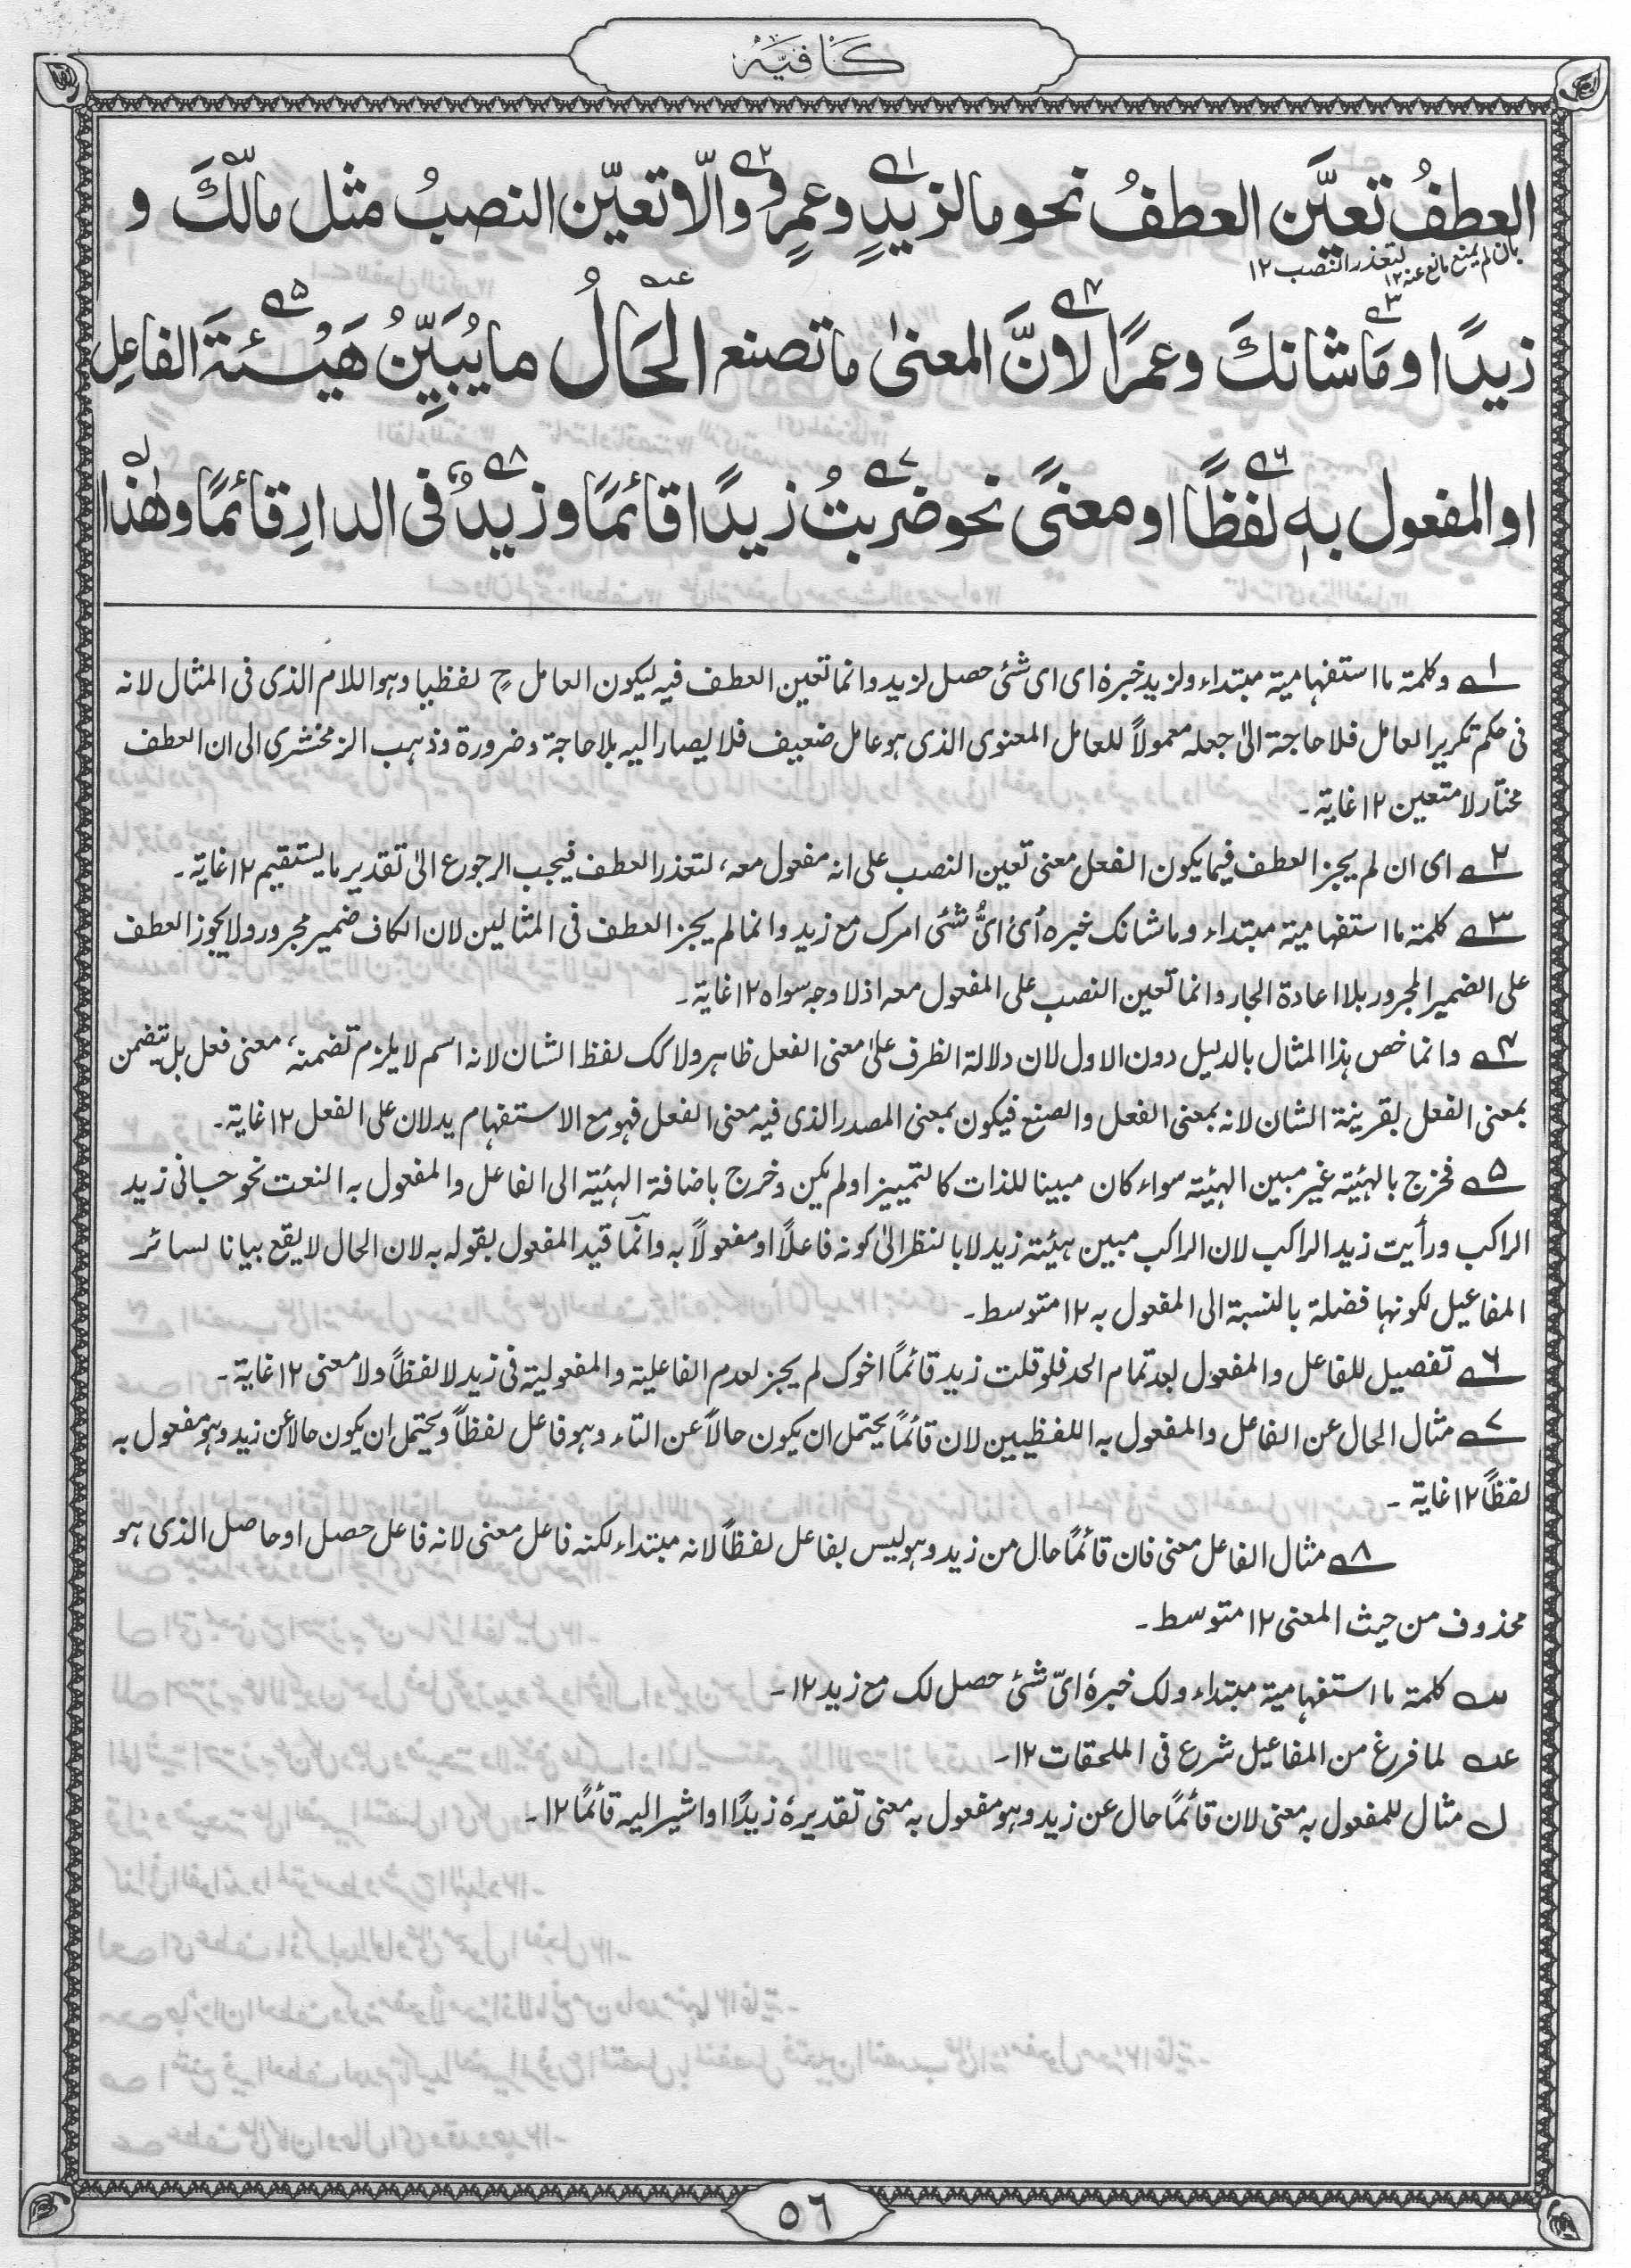 كَافِيَه
العطفُ تعيَّن العطفُ نحو مالزيدٍ وعمرٍو والّا تعيّن النصبُ مثل مالكَ و
بان لم يمنع مانع عنه ١٢ لتعذر النصب ١٢
زيدًا ومَاشانكَ وعمرًا لانَّ المعنىٰ ماتصنع الحَالُ مايُبَيِّنُ هَيْئةَ الفاعلِ
او المفعول به لفظًا او معنىً نحو ضربتُ زيدًا قائمًا وزيدٌ فى الدارِ قائمًا وهٰذا
١ وكلمة ما استفهامية مبتداء ولزيد خبره اى اى شئ حصل لزيد وانما تعين العطف فيه ليكون العامل ح لفظيا وهو اللام الذى فى المثال لانه
فى حكم تكرير العامل فلا حاجة الىٰ جعله معمولاً للعامل المعنوى الذى هو عامل ضعيف فلا يصار اليه بلا حاجة وضرورة وذهب الزمخشرى الى ان العطف
مختار لا متعين ١٢ غاية۔
٢ اى ان لم يجز العطف فيما يكون الفعل معنى تعين النصب على انه مفعول معه، لتعذر العطف فيجب الرجوع الىٰ تقدير ما يستقيم ١٢ غاية۔
٣ كلمة ما استفهامية مبتداء وما شانك خبره أى اىُّ شئى امرك مع زيد وانما لم يجز العطف فى المثالين لان الكاف ضمير مجرور ولا يجوز العطف
على الضمير المجرور بلا اعادة الجار وانما تعين النصب على المفعول معه اذ لا وجه سواه ١٢ غاية۔
٤ وانما خص هذا المثال بالدليل دون الاول لان دلالة الظرف علىٰ معنى الفعل ظاهر ولا كك لفظ الشان لانه اسم لا يلزم تضمنه، معنى فعل بل يتضمن
بمعنى الفعل بقرينة الشان لانه بمعنى الفعل والصنع فيكون بمعنى المصدر الذى فيه معنى الفعل فهو مع الاستفهام يدلان على الفعل ١٢ غاية۔
٥ فخرج بالهيئة غير مبين الهيئة سواء كان مبينا للذات كالتمييز اولم يكن وخرج باضافة الهيئة الى الفاعل والمفعول به النعت نحو جاءنى زيد
الراكب ورأيت زيد الراكب لان الراكب مبين هيئة زيد لا بالنظر الىٰ كونه فاعلًا او مفعولاً به وانما قيد المفعول بقوله به لان الحال لا يقع بيانا لسائر
المفاعيل لكونها فضلة بالنسبة الى المفعول به ١٢ متوسط۔
٦ تفصيل للفاعل والمفعول بعد تمام الحد فلو قلت زيد قائمًا اخوك لم يجز لعدم الفاعلية والمفعولية فى زيد لا لفظاً ولا معنى ١٢ غاية۔
٧ مثال الحال عن الفاعل والمفعول به اللفظيين لان قائمًا يحتمل ان يكون حالاً عن التاء وهو فاعل لفظاً ويحتمل ان يكون حالاً عن زيد وهو مفعول به
لفظًا ١٢ غاية۔
٨ مثال الفاعل معنى فان قائمًا حال من زيد وهو ليس بفاعل لفظاً لانه مبتداء لكنه فاعل معنى لانه فاعل حصل او حاصل الذى هو
محذوف من حيث المعنى ١٢ متوسط۔
س كلمة ما استفهامية مبتداء ولك خبرهٗ اىّ شئ حصل لك مع زيد ١٢۔
عہ لما فرغ من المفاعيل شرع فى الملحقات ١٢۔
ل مثال للمفعول به معنى لان قائمًا حال عن زيد وهو مفعول به معنى تقديره زيدًا او اشير اليه قائمًا ١٢۔
٥٦